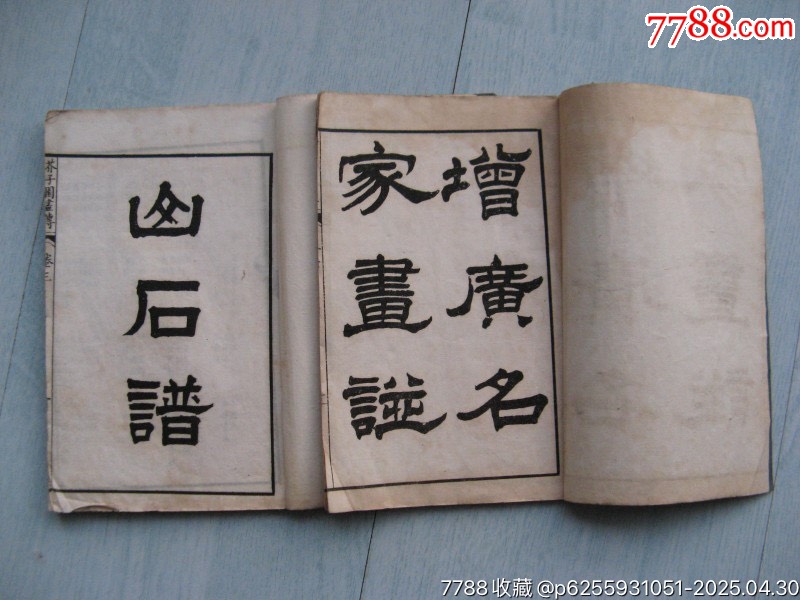 7788.com
增廣名
家畫譜
山石譜
芥子園畫傳
卷三
7788收藏 @p6255931051-2025.04.30